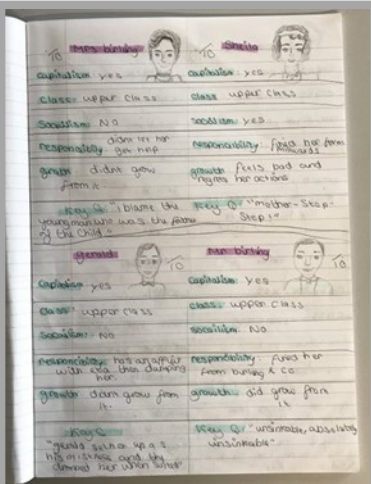 /10 Mrs birling
capitalism: yes
class: upper class
socialism: NO
responsibility: didnt let her
get help
growth: didnt grow
from it
Key Q: "i blame the
young man who was the father
of the child."
/10 Sheila
capitalism: yes
class: upper class
socialism: yes
responsibility: fired her from
growth: feels bad and
regrets her actions
Key Q: "mother - Stop -
Stop!"
gerald /10
capitalism: yes
class: upper class
socialism: NO
responsibility: has an affair
with eva then dumping
her.
growth: didnt grow from
it.
Key Q
"gerald set her up as
his mistress and
her when
Mr birling /10
capitalism: yes
class: upper class
socialism: NO
responsibility: fired her
from birling & co
growth: did grow from
it
Key Q: "unsinkable, absolutely
unsinkable"